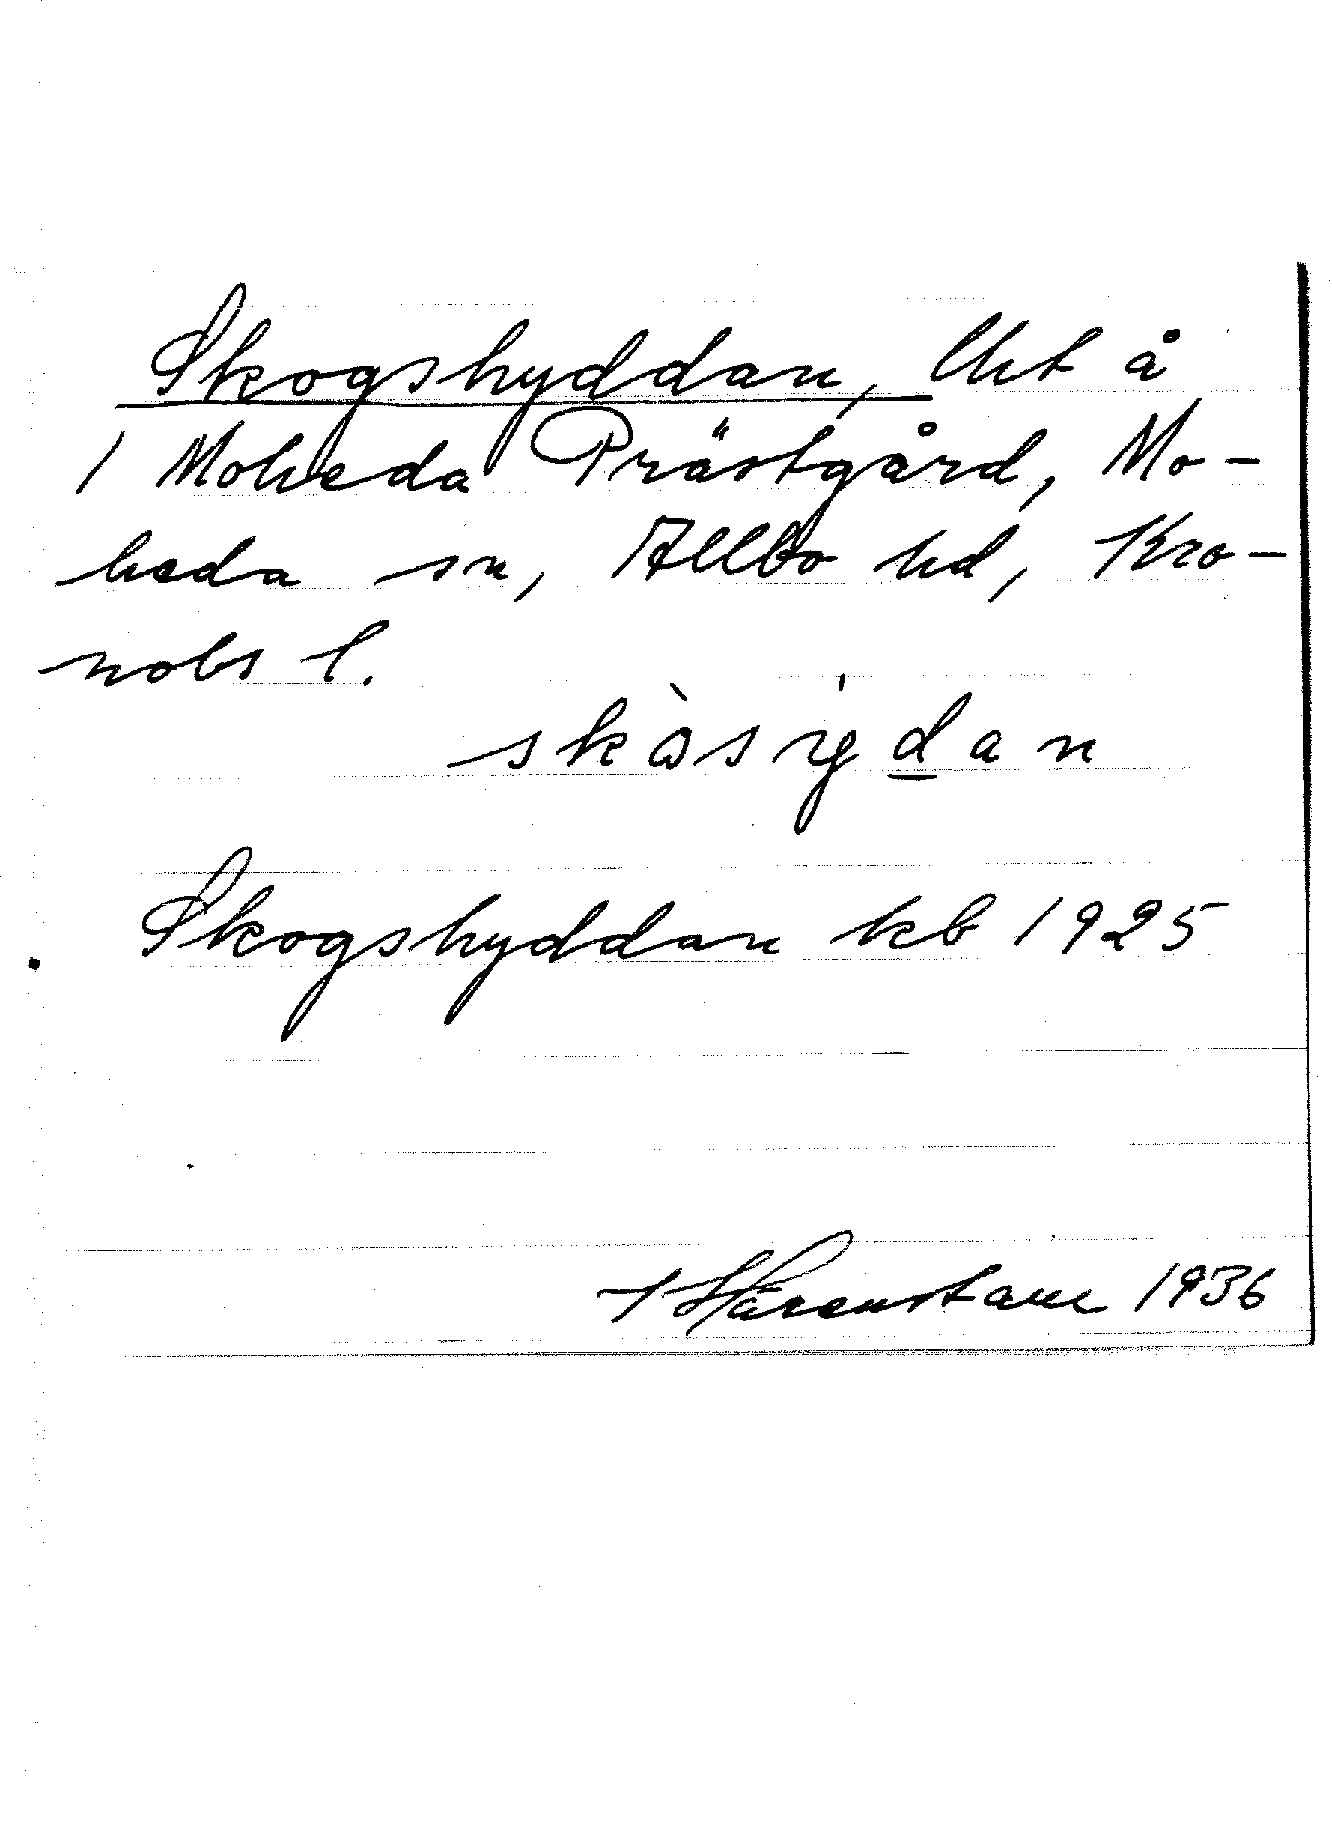 Skogshyddan, lht å
1 Moheda Prästgård, Mo-
heda sn, Allbo hd, Kro-
nobs l.
Skogshyddan kb 1925
Hårenstam 1936